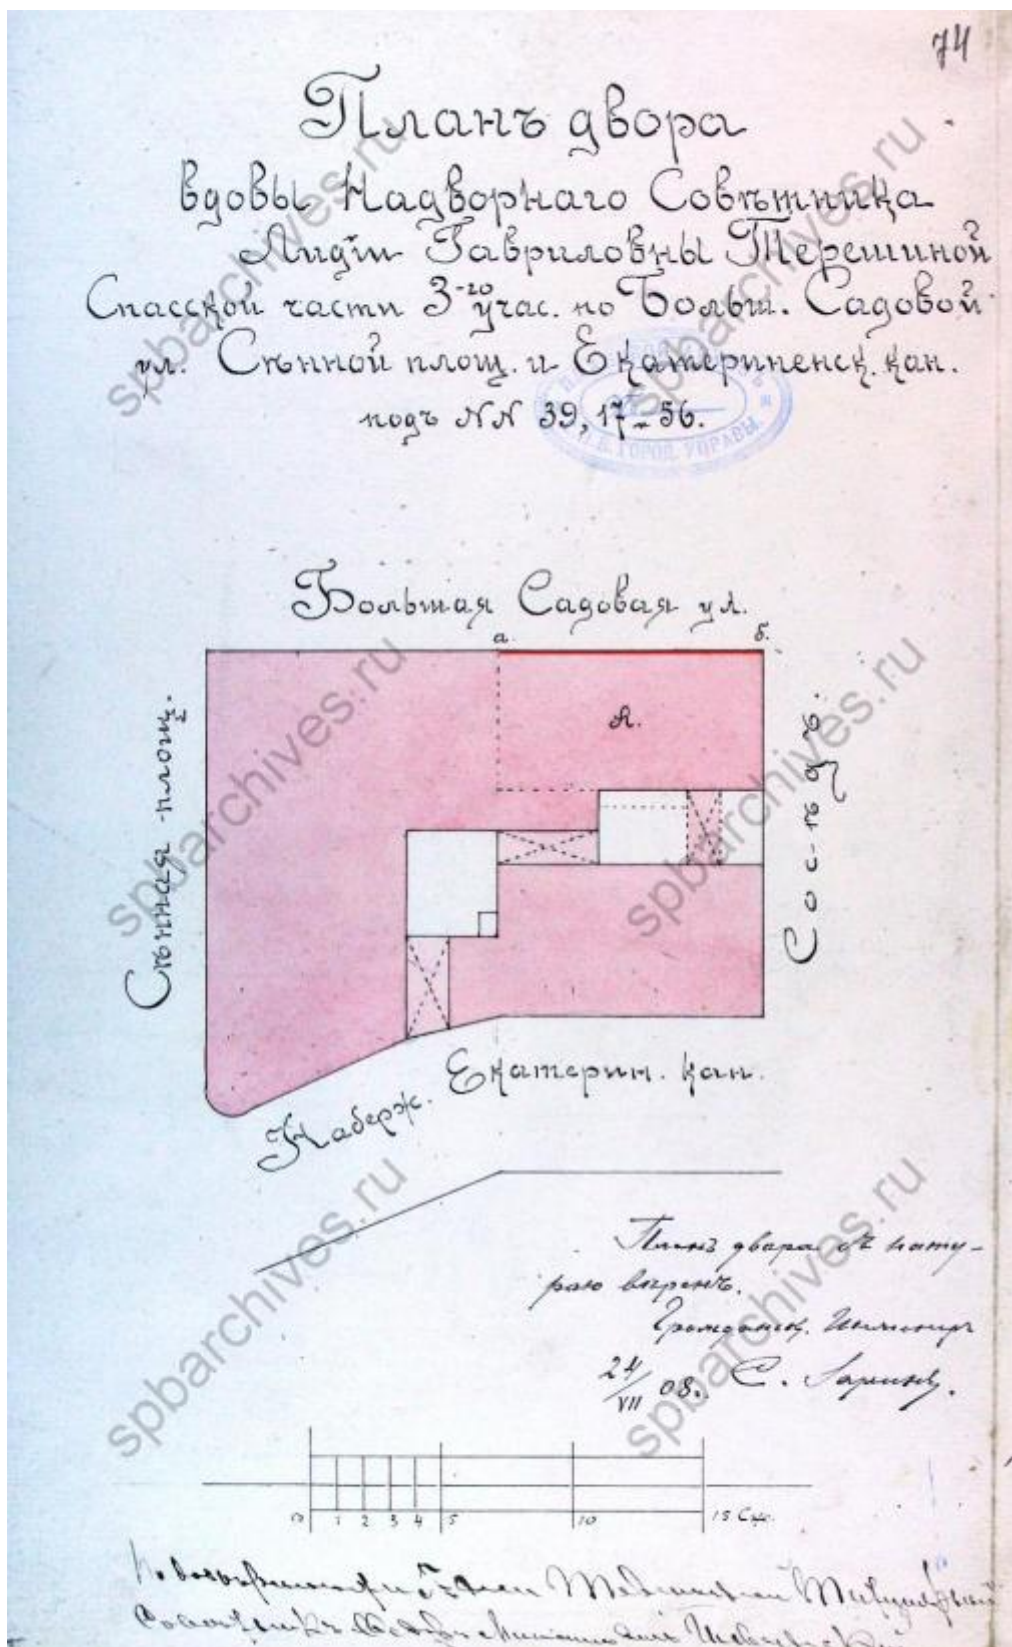 74
Планъ двора
вдовы Надворнаго Совѣтника
Лидіи Гавриловны Терешиной
Спасской части 3-го учас. по Больш. Садовой
ул. Сѣнной площ. и Екатериненск. кан.
подъ NN 39, 17-56.
ГОРОД. УПРАВЫ.
Большая Садовая ул.
а. б.
А.
Сѣнная площ.
Сосѣдъ.
Набереж. Екатерин. кан.
Планъ двора съ нату-
рою вѣренъ.
Гражданск. Инженеръ
24/VII 08. С.
0 1 2 3 4 5 10 15 Саж.
spbarchives.ru
spbarchives.ru
spbarchives.ru
spbarchives.ru
spbarchives.ru
spbarchives.ru